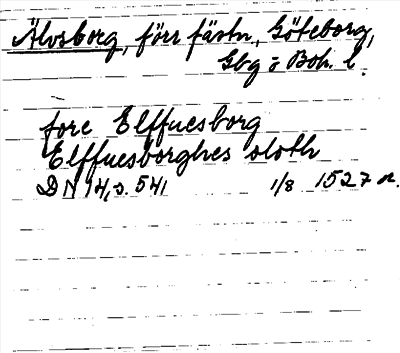 Älvsborg, förr fästn., Göteborg,
Gbg o Boh. l.
fore Elffuesborg
Elffuesborghes sloth
DN 14, s. 541 1/8 1527 or.